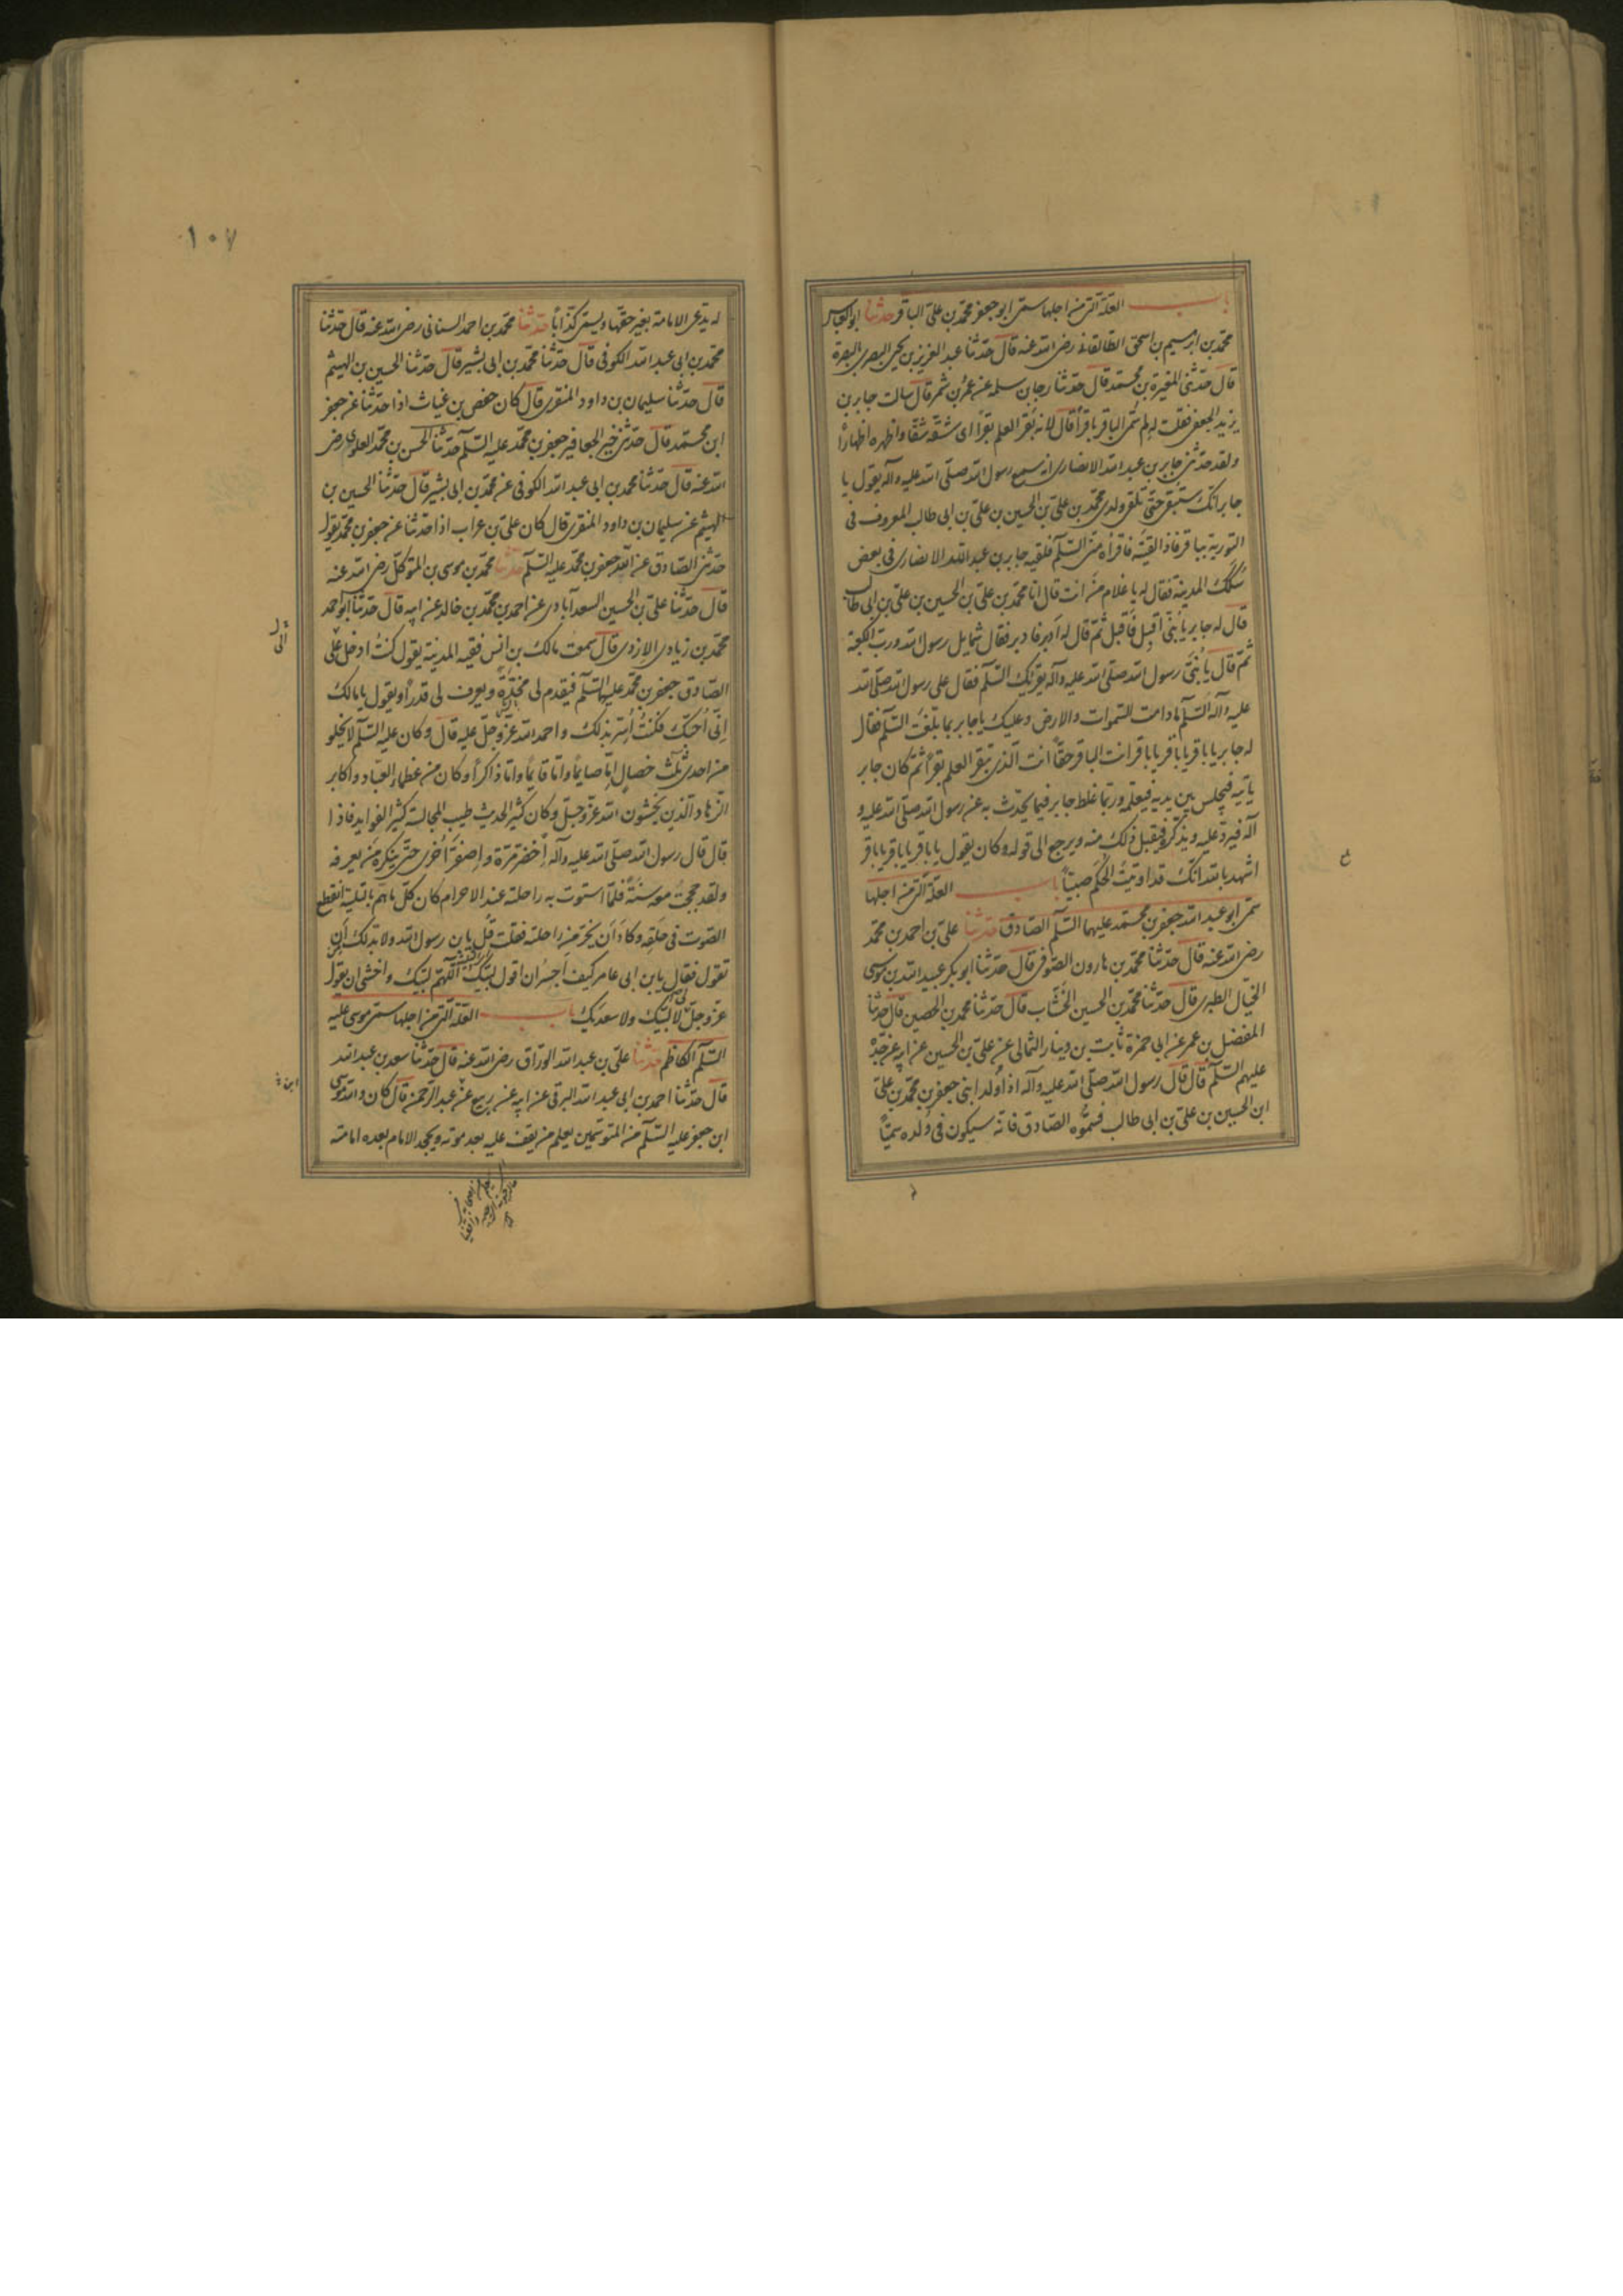 باب العلة التي من اجلها سمى ابو جعفر محمد بن على الباقر حدثنا ابو العباس
محمد بن ابرهيم بن اسحق الطالقانى رضى الله عنه قال حدثنا عبد العزيز بن يحيى البصرى بالبصرة
قال حدثنى المغيرة بن محمد قال حدثنا رجا بن سلمه عن عمرو بن شمر قال سالت جابر بن
يزيد الجعفى فقلت له لم سمى الباقر باقرا قال لانه بقر العلم بقرا اى شقه شقا واظهره اظهارا
ولقد حدثنى جابر بن عبد الله الانصارى انه سمع رسول الله صلى الله عليه وآله يقول يا
جابر انك ستبقى حتى تلقى ولدى محمد بن على بن الحسين بن على بن ابى طالب المعروف فى
التورية بباقر فاذا لقيته فاقرأه منى السلم فلقيه جابر بن عبد الله الانصارى فى بعض
سكك المدينة فقال له يا غلام من انت قال انا محمد بن على بن الحسين بن على بن ابى طالب
قال له جابر يا بنى اقبل فاقبل ثم قال له ادبر فادبر فقال شمايل رسول الله ورب الكعبة
ثم قال يا بنى رسول الله صلى الله عليه وآله يقرئك السلم فقال على رسول الله صلى الله
عليه وآله السلم ما دامت السموات والارض وعليك يا جابر بما بلغت السلم فقال
له جابر يا باقر يا باقر يا باقر انت الباقر حقا انت الذى تبقر العلم بقرا ثم كان جابر
ياتيه فيجلس بين يديه فيعلمه وربما غلط جابر فيما يحدث به عن رسول الله صلى الله عليه و
آله فيرد عليه ويذكره فيقبل ذلك منه ويرجع الى قوله وكان يقول يا باقر يا باقر يا باقر
اشهد بالله انك قد اوتيت الحكم صبيا باب العلة التي من اجلها
سمى ابو عبد الله جعفر بن محمد عليهما السلم الصادق حدثنا على بن احمد بن محمد
رضى الله عنه قال حدثنا محمد بن هارون الصوفى قال حدثنا ابو بكر عبيد الله بن موسى
الخيال الطبرى قال حدثنا محمد بن الحسين الخشاب قال حدثنا محمد بن الحصين قال حدثنا
المفضل بن عمر عن ابى حمزة ثابت بن دينار الثمالى عن على بن الحسين عن ابيه عن جده
عليهم السلم قال قال رسول الله صلى الله عليه وآله اذا ولد ابنى جعفر بن محمد بن على
ابن الحسين بن على بن ابى طالب فسموه الصادق فانه سيكون فى ولده سميا
١٠٧
له يدعى الامامة بغير حقها ويسمى كذابا حدثنا محمد بن احمد السنانى رضى الله عنه قال حدثنا
محمد بن ابى عبد الله الكوفى قال حدثنا محمد بن ابى بشير قال حدثنا الحسين بن الهيثم
قال حدثنا سليمان بن داود المنقرى قال كان حفص بن غياث اذا حدثنا عن جعفر
ابن محمد قال حدثنى خير الجعافير جعفر بن محمد عليه السلم حدثنا الحسن بن محمد العلوى رضى
الله عنه قال حدثنا محمد بن ابى عبد الله الكوفى عن محمد بن ابى بشير قال حدثنا الحسين بن
الهيثم عن سليمان بن داود المنقرى قال كان على بن غراب اذا حدثنا عن جعفر بن محمد يقول
حدثنى الصادق عن الله جعفر بن محمد عليه السلم حدثنا محمد بن موسى بن المتوكل رضى الله عنه
قال حدثنا على بن الحسين السعدآبادى عن احمد بن محمد بن خالد عن ابيه قال حدثنا ابو احمد
محمد بن زيادى الازدى قال سمعت مالك بن انس فقيه المدينة يقول كنت ادخل على
الصادق جعفر بن محمد عليهما السلم فيقدم لى مخدة ويعرف لى قدرا ويقول يا مالك
انى احبك فكنت اسر بذلك واحمد الله عز وجل عليه قال وكان عليه السلم لا يخلو
من احدى ثلث خصال اما صايما واما قايما واما ذاكرا وكان من عظماء العباد واكابر
الزهاد الذين يخشون الله عز وجل وكان كثير الحديث طيب المجالسة كثير الفوايد فاذا
قال قال رسول الله صلى الله عليه وآله اخضر مرة واصفر اخرى حتى ينكره من يعرفه
ولقد حججت معه سنة فلما استوت به راحلته عند الاحرام كان كلما هم بالتلبية انقطع
الصوت فى حلقه وكاد ان يخر من راحلته فقلت قل يابن رسول الله ولا بد لك ان
تقول فقال يابن ابى عامر كيف اجسر ان اقول لبيك اللهم لبيك واخشى ان يقول
عز وجل لا لبيك ولا سعديك باب العلة التي من اجلها سمى موسى عليه
السلم الكاظم حدثنا على بن عبد الله الوراق رضى الله عنه قال حدثنا سعد بن عبد الله
قال حدثنا احمد بن ابى عبد الله البرقى عن ابيه عن ربيع عن عبد الرحمن قال كان والله موسى
ابن جعفر عليه السلم من المتوسمين يعلم من يقف عليه بعد موته ويجحد الامام بعده امامته